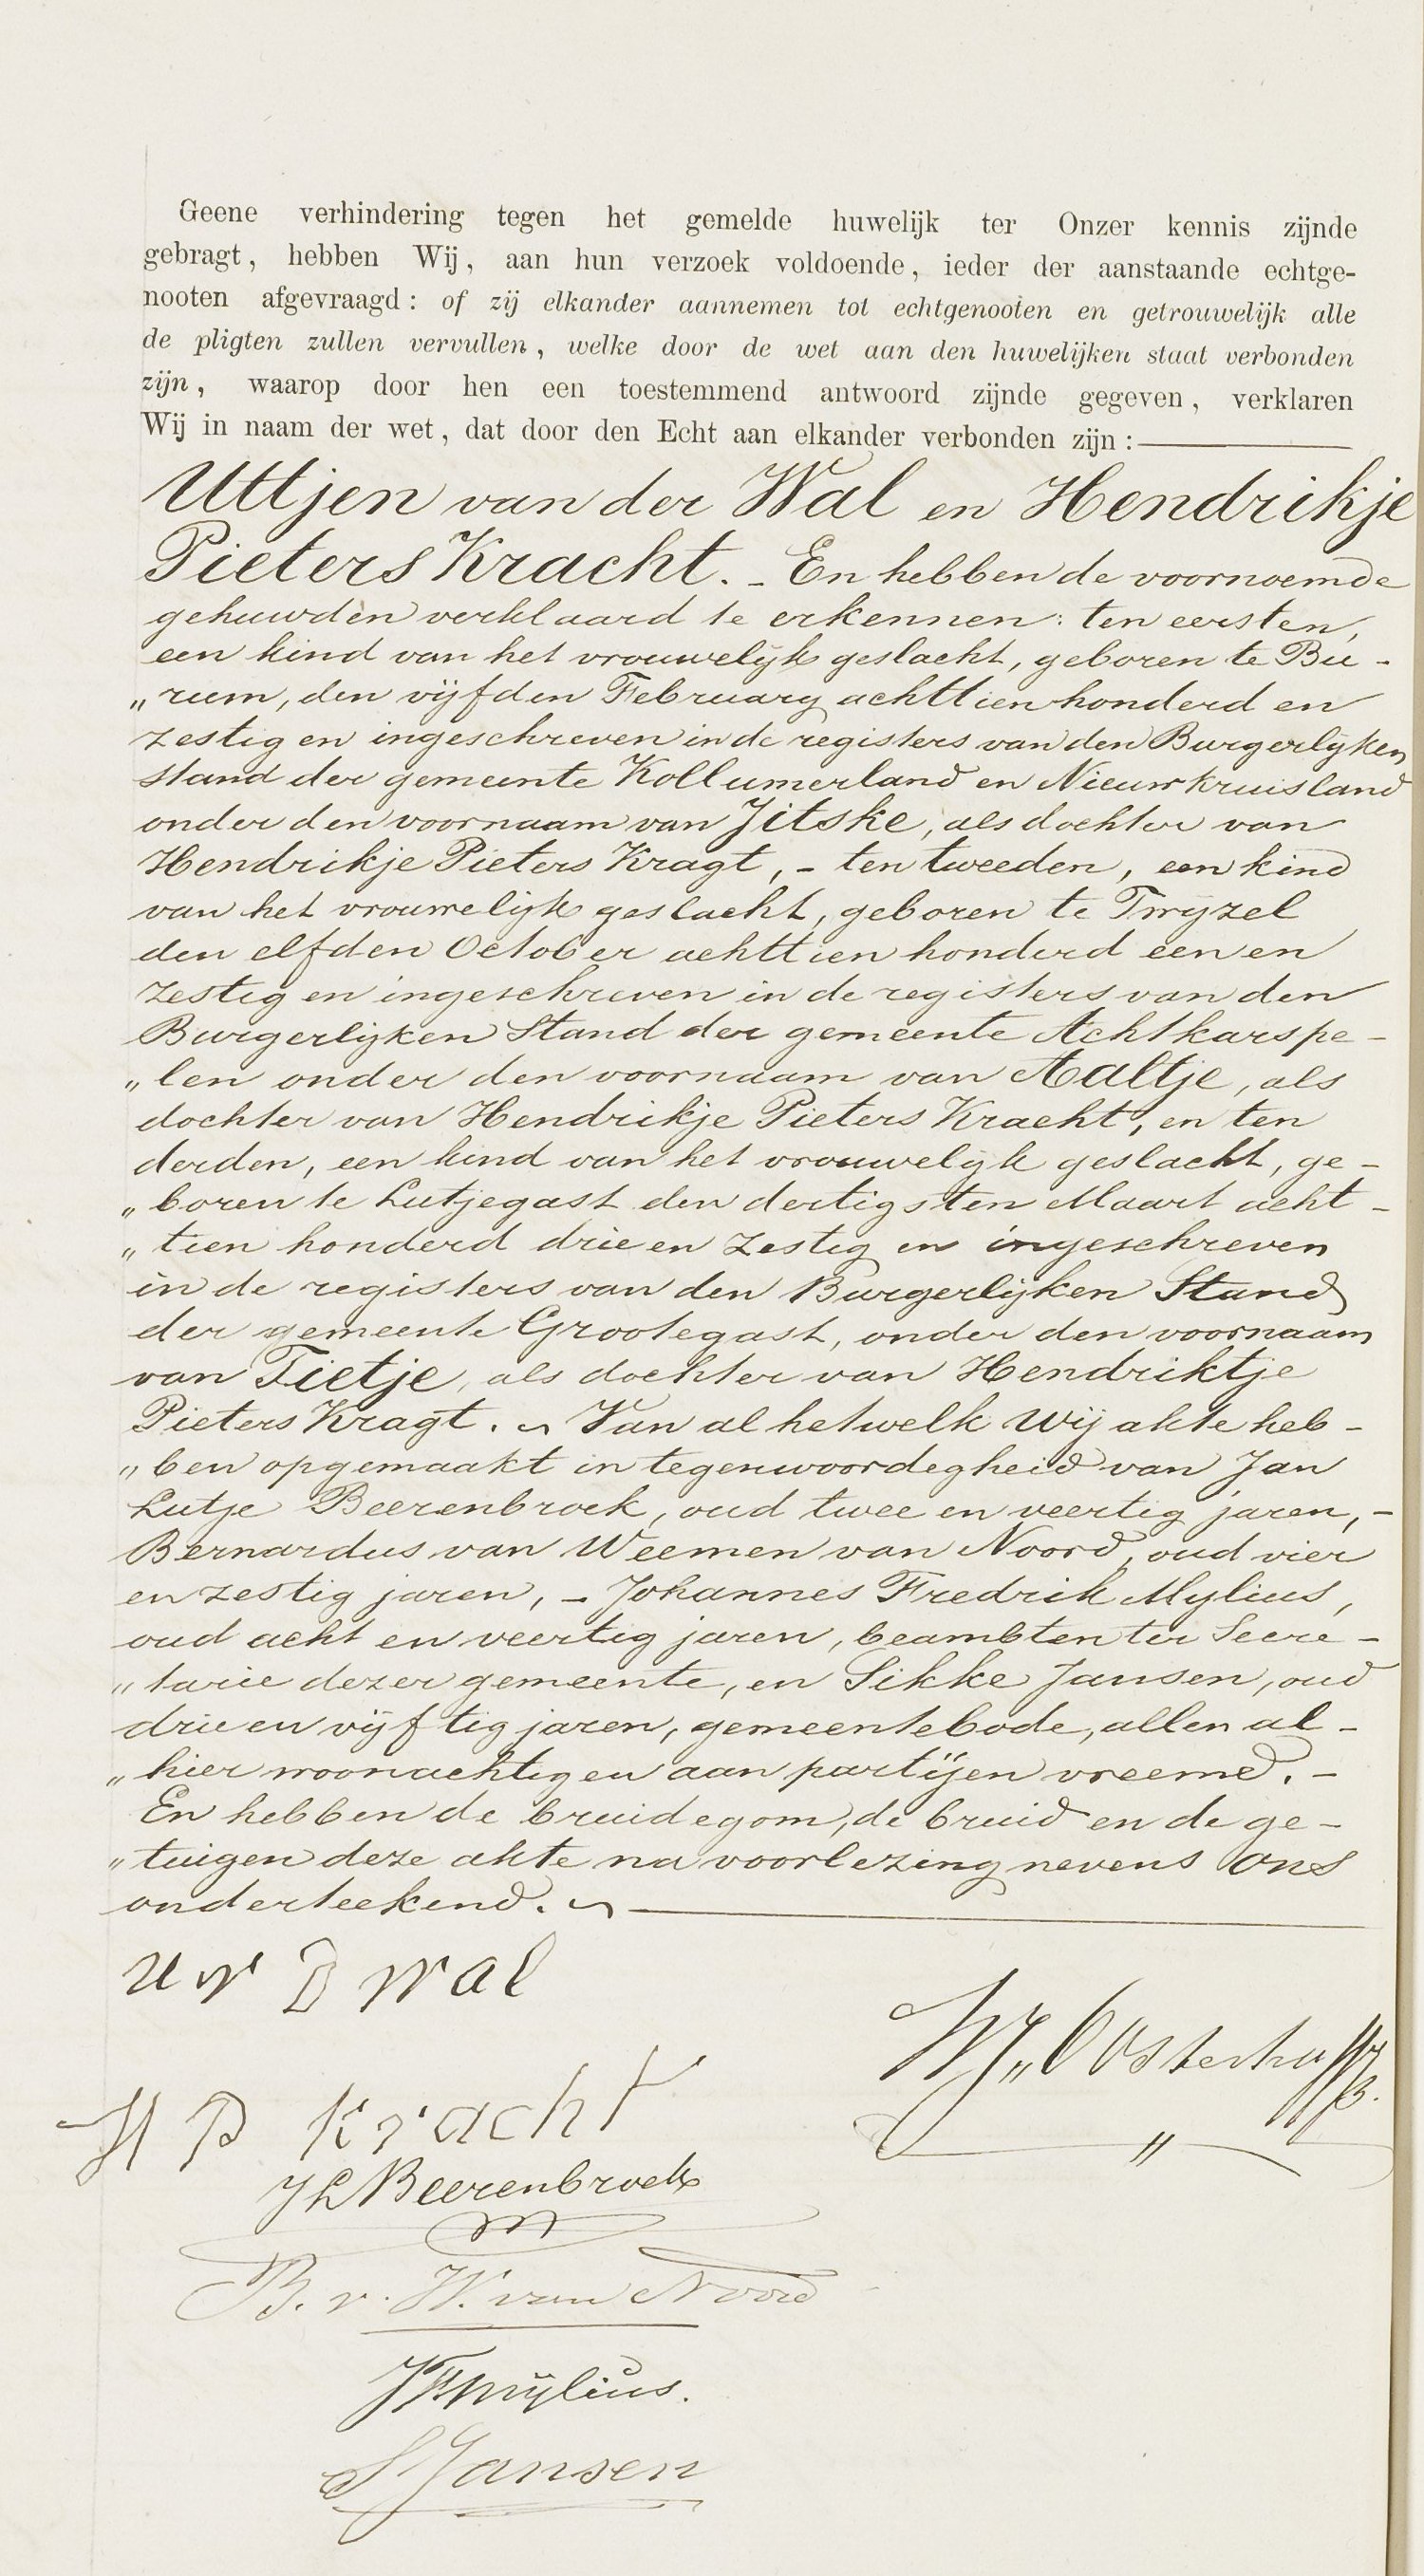 Geene verhindering tegen het gemelde huwelijk ter Onzer kennis zijnde
gebragt, hebben Wij, aan hun verzoek voldoende, ieder der aanstaande echtge-
nooten afgevraagd: of zij elkander aannemen tot echtgenooten en getrouwelijk alle
de pligten zullen vervullen, welke door de wet aan den huwelijken staat verbonden
zijn, waarop door hen een toestemmend antwoord zijnde gegeven, verklaren
Wij in naam der wet, dat door den Echt aan elkander verbonden zijn:
Uttjen van der Wal en Hendrikje
Pieters Kracht. - En hebben de voornoemde
gehuwden verklaard te erkennen: ten eersten,
een kind van het vrouwelijk geslacht, geboren te Bu-
„rum, den vijfden February achttienhonderd en
zestig en ingeschreven in de registers van den Burgerlijken
stand der gemeente Kollumerland en Nieuwkruisland
onder den voornaam van Jitske, als dochter van
Hendrikje Pieters Kragt, - ten tweeden, een kind
van het vrouwelijk geslacht, geboren te Twijzel
den elfden October achttien honderd een en
zestig en ingeschreven in de registers van den
Burgerlijken Stand der gemeente Achtkarspe-
„len onder den voornaam van Aaltje, als
dochter van Hendrikje Pieters Kracht, en ten
derden, een kind van het vrouwelijk geslacht, ge-
„boren te Lutjegast den dertigsten Maart acht-
„tien honderd drie en zestig en ingeschreven
in de registers van den Burgerlijken Stand
der gemeente Grootegast, onder den voornaam
van Tietje, als dochter van Hendriktje
Pieters Kragt. Van al hetwelk Wij akte heb-
„ben opgemaakt in tegenwoordegheid van Jan
Lutje Beerenbroek, oud twee en veertig jaren, -
Bernardus van Weemen van Noord, oud vier
en zestig jaren, - Johannes Fredrik Mylius,
oud acht en veertig jaren, beambten ter Secre-
„tarie dezer gemeente, en Sikke Jansen, oud
drie en vijftig jaren, gemeentebode, allen al-
„hier woonachtig en aan partijen vreemd. -
En hebben de bruidegom, de bruid en de ge-
„tuigen deze akte na voorlezing nevens ons
onderteekend.
U v D Wal
W J„ Oosterhoff
H P Kracht
J L Beerenbroek
B. v. W. van Noord
J F Mylius.
S Jansen